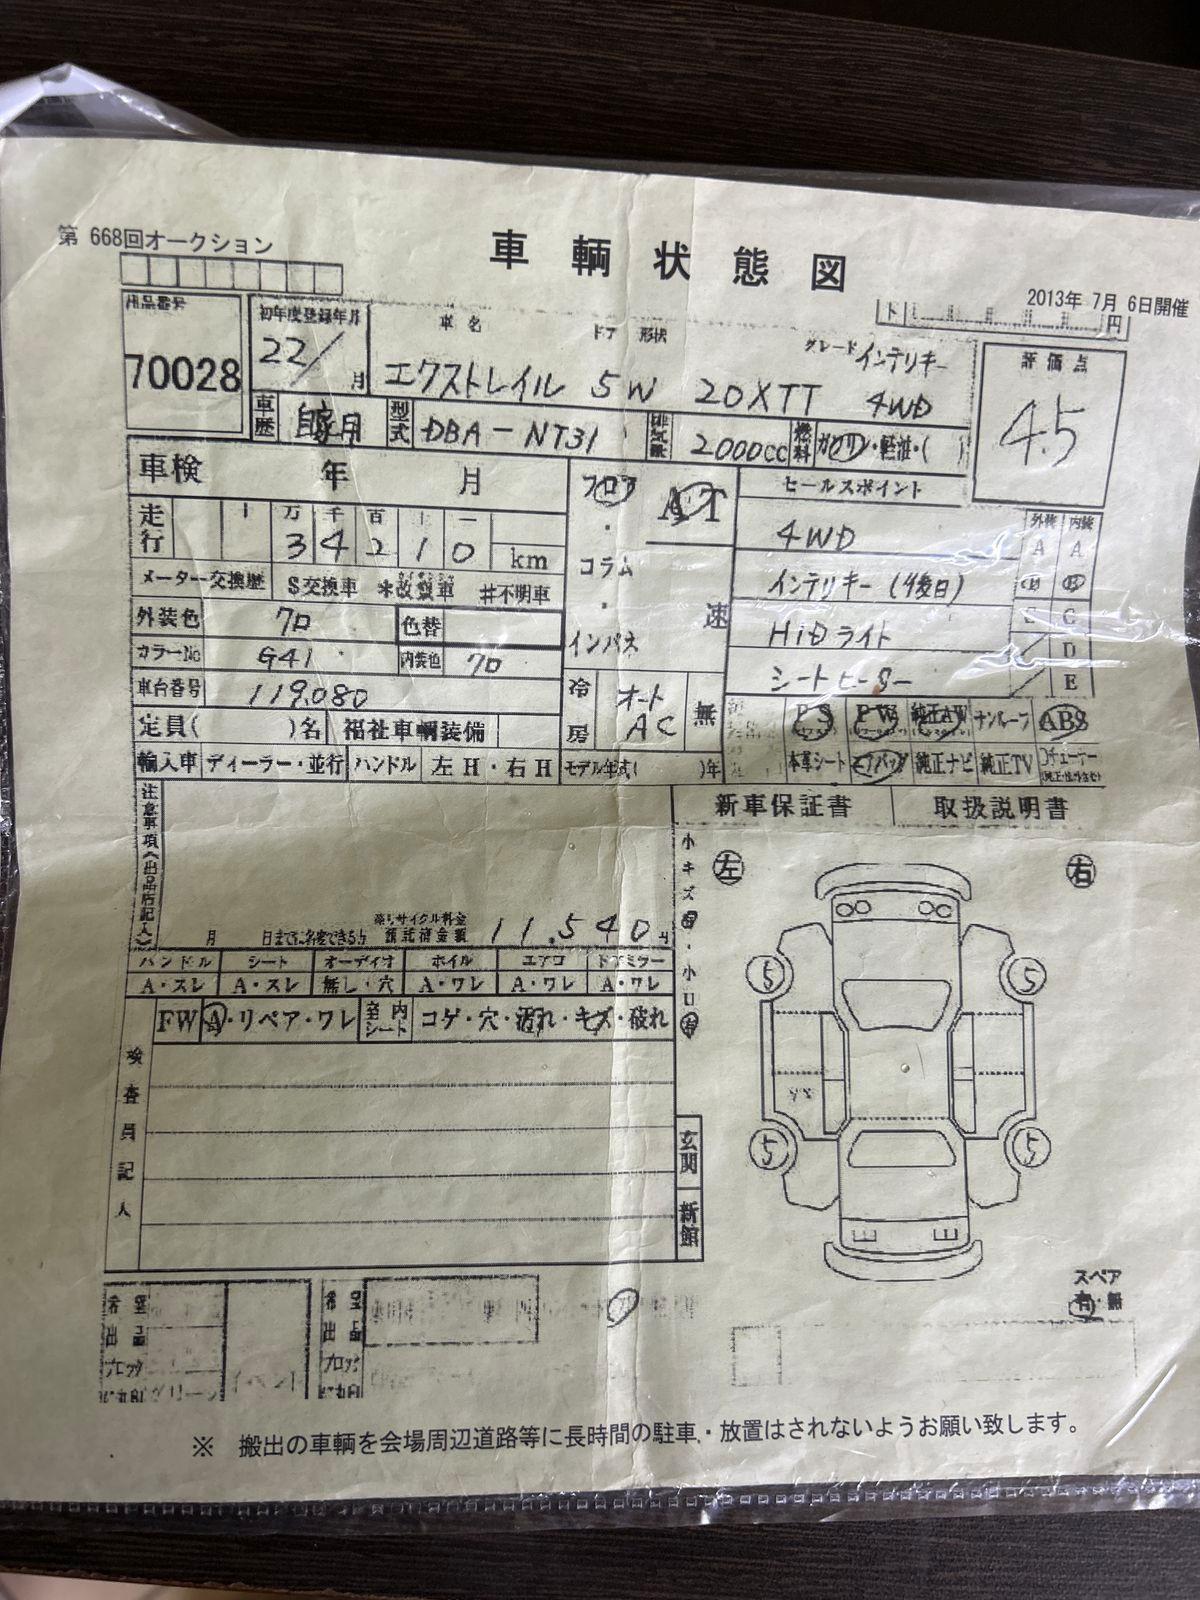 第 668回オークション
車輌状態図
2013年 7月 6日開催
出品番号
70028
初年度登録年月
22/
月
車名
ドア 形状
グレード インテリキー
エクストレイル 5W 20XTT 4WD
評価点
4.5
車歴
自家用
型式
DBA-NT31
排気量
2000cc
燃料
ガソリン・軽油・( )
車検 年 月
フロア
AT
セールスポイント
走行
十 万 千 百 十 一
3 4 2 1 0
km
コラム
インパネ
速
4WD
インテリキー (後日)
HiDライト
シートヒーター
外装 内装
A A
B B
C C
D
E
メーター交換歴 S交換車 *改ざん車 #不明車
外装色
クロ
色替
カラーNo
G41
内装色
クロ
車台番号
119.080
冷房
オート
AC
無
定員( )名
福祉車輌装備
PS PW 純正AW サンルーフ ABS
輸入車 ディーラー・並行 ハンドル 左H・右H モデル年式( )年
本革シート エアバッグ 純正ナビ 純正TV
新車保証書 取扱説明書
注意事項《出品店記入》
小キズ有・小凹有
左
右
月 日までに名変できる方
リサイクル料金
預託済金額
11,540円
ハンドル シート オーディオ ホイル エアコン ドアミラー
A・スレ A・スレ 無し・穴 A・ワレ A・ワレ A・ワレ
FW A・リペア・ワレ
室内シート
コゲ・穴・汚れ・キズ・破れ
検査員記入
5
5
5
5
玄関
新館
スペア
有・無
希望
出品
ブロック
希望
出品
ブロック
※ 搬出の車輌を会場周辺道路等に長時間の駐車・放置はされないようお願い致します。